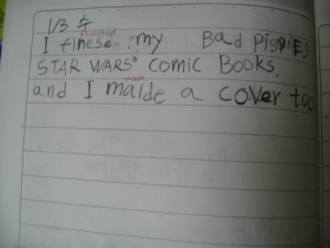 1/3 수
finished
I finese my Bad PiggiEs
STAR WARS® comic Books.
made
and I maide a cover too